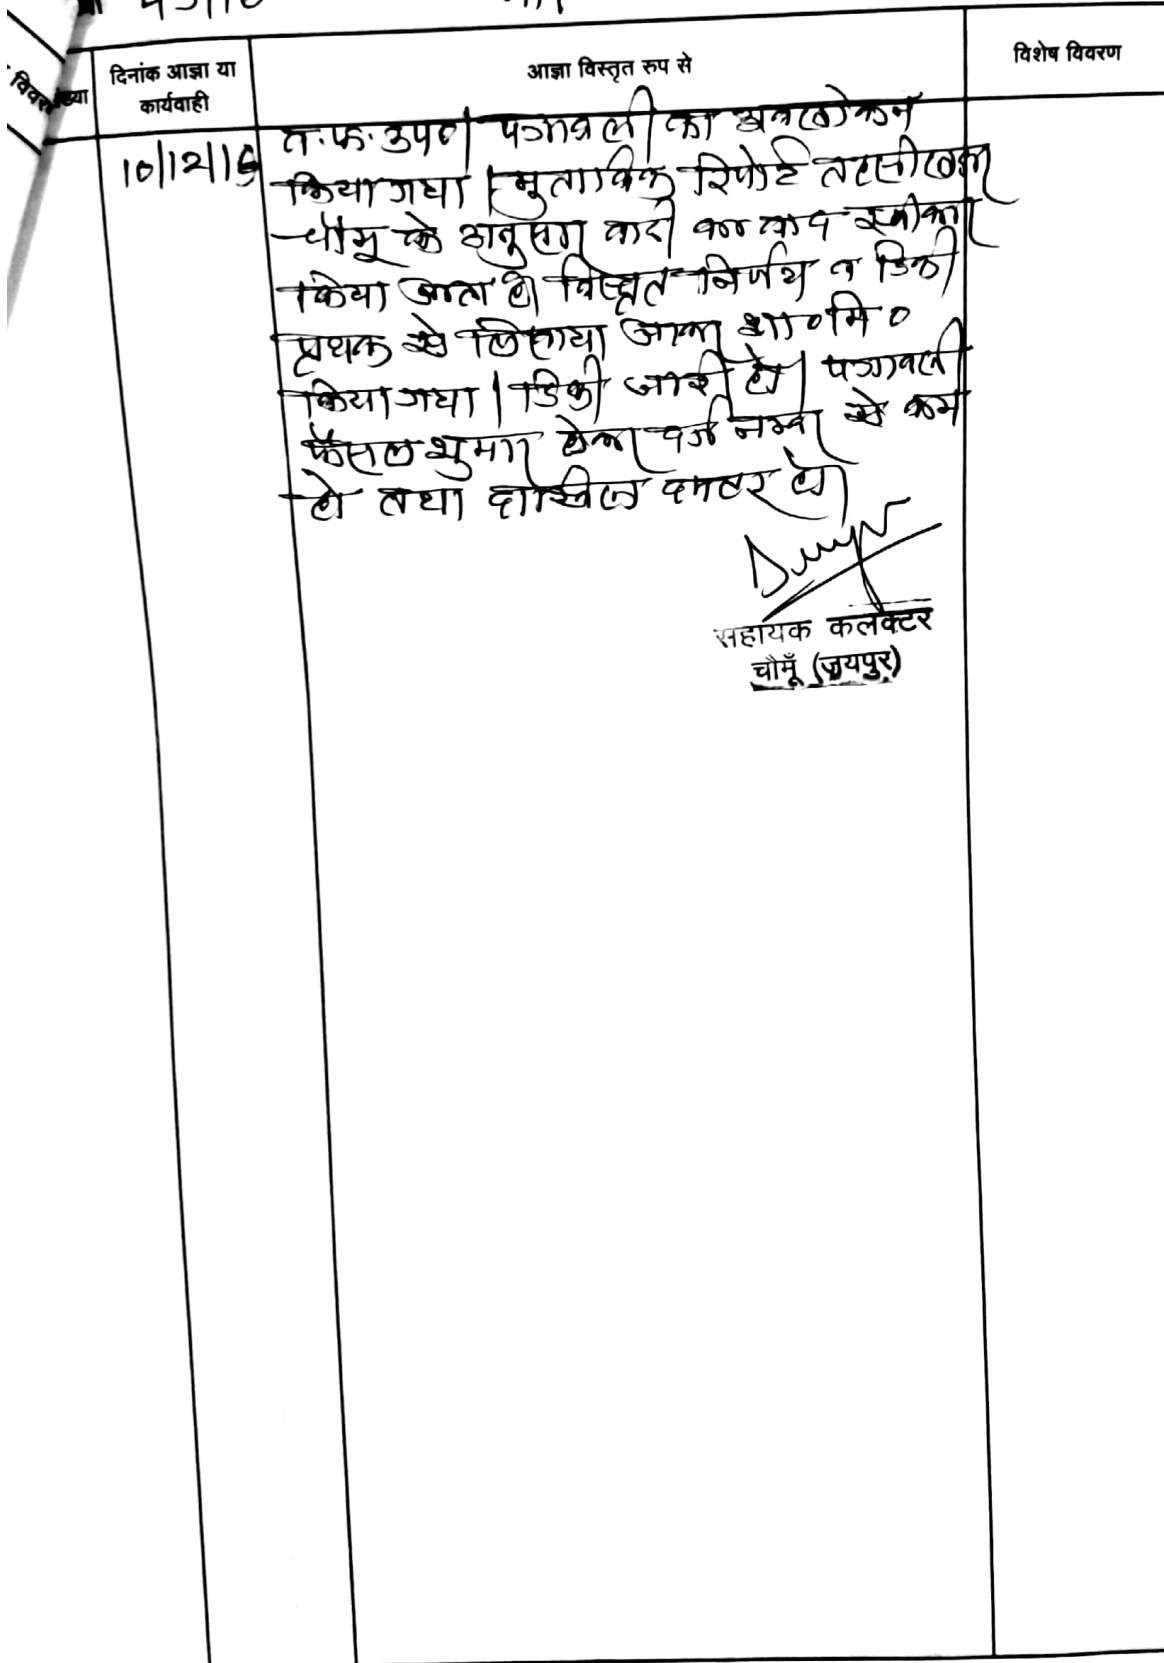 विवर
ख्या
दिनांक आज्ञा या
कार्यवाही
आज्ञा विस्तृत रुप से
विशेष विवरण
10/12/15
त.फ. उप०। पत्रावली का अवलोकन
किया गया। मुताबिक रिपोर्ट तहसीलदार
चौमू के अनुसार वादी का वाद स्वीकार
किया जाता है। विस्तृत निर्णय व डिक्री
पृथक से लिखाया जाकर शा०मि०
किया गया। डिक्री जारी हो। पत्रावली
फैसल शुमार होकर दर्ज नम्बर से कम
हो तथा दाखिल दफ्तर हो।
सहायक कलक्टर
चौमूँ (जयपुर)